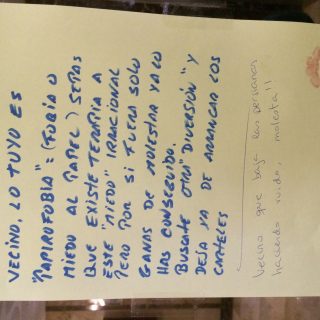 VECINO, LO TUYO ES
"PAPIROFOBIA": (FOBIA O
MIEDO AL PAPEL) SEPAS
QUE EXISTE TERAPIA A
ESTE "MIEDO" IRRACIONAL
PERO POR SI FUERA SOLO
GANAS DE MOLESTAR YA LO
HAS CONSEGUIDO.
BUSCATE OTRA "DIVERSIÓN" Y
DEJA YA DE ARRANCAR LOS
CARTELES
Vecino que baja las persianas
haciendo ruido, molesta!!